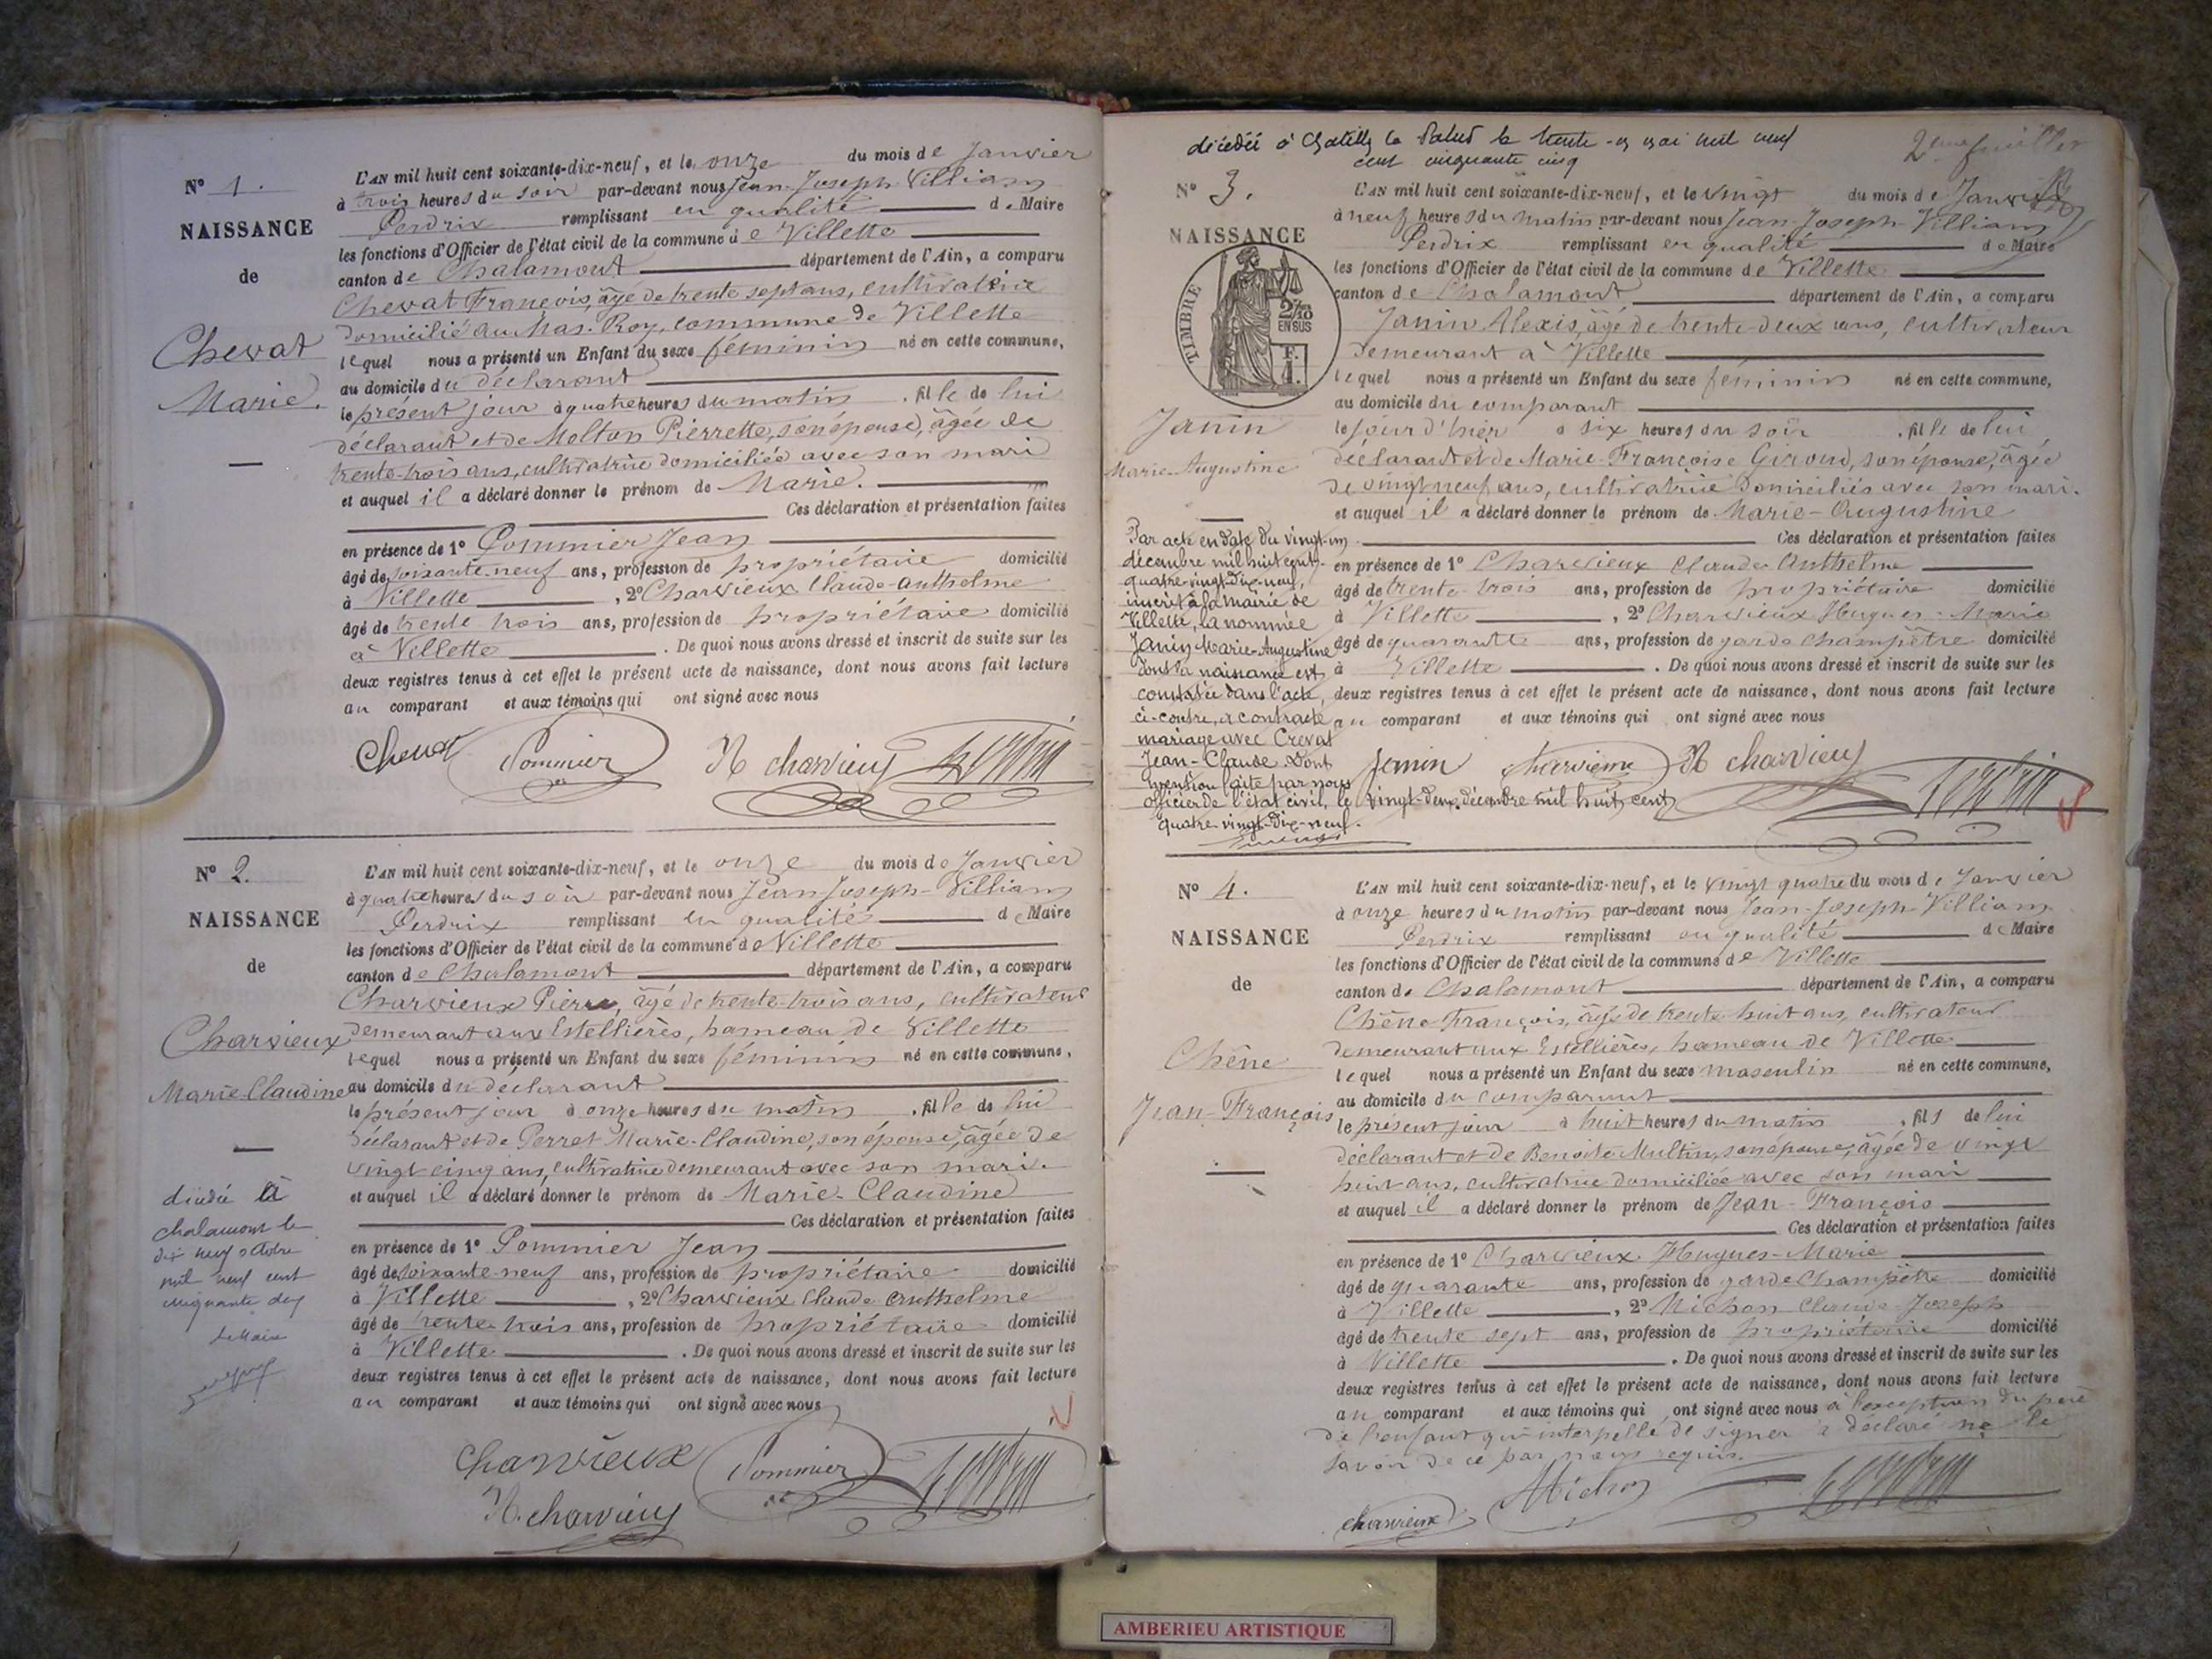 N° 1.
NAISSANCE
de
Chevat
Marie.
L'AN mil huit cent soixante-dix-neuf, et le onze du mois de Janvier
à trois heures du soir par-devant nous Jean-Joseph Villiam
Perdrix remplissant en qualité de Maire
les fonctions d'Officier de l'état civil de la commune de Villette
canton de Chalamont département de l'Ain, a comparu
Chevat François, âgé de trente sept ans, cultivateur
domicilié au Mas-Roy, commune de Villette
lequel nous a présenté un Enfant du sexe féminin né en cette commune,
au domicile du déclarant
le présent jour à quatre heures du matin, fille de lui
déclarant et de Molton Pierrette, son épouse, âgée de
trente-trois ans, cultivatrice domiciliée avec son mari
et auquel il a déclaré donner le prénom de Marie.
Ces déclaration et présentation faites
en présence de 1° Pommier Jean
âgé de soixante-neuf ans, profession de propriétaire domicilié
à Villette, 2° Charvieux Claude-Anthelme
âgé de trente trois ans, profession de propriétaire domicilié
à Villette. De quoi nous avons dressé et inscrit de suite sur les
deux registres tenus à cet effet le présent acte de naissance, dont nous avons fait lecture
au comparant et aux témoins qui ont signé avec nous
Chevat Pommier charvieux Perdrix
N° 2.
NAISSANCE
de
Charvieux
Marie-Claudine
décédée à
chalamont le
dix neuf octobre
mil neuf cent
cinquante deux
Le Maire
L'AN mil huit cent soixante-dix-neuf, et le onze du mois de Janvier
à quatre heures du soir par-devant nous Jean-Joseph-Villiam
Perdrix remplissant en qualité de Maire
les fonctions d'Officier de l'état civil de la commune de Villette
canton de Chalamont département de l'Ain, a comparu
Charvieux Pierre, âgé de trente-trois ans, cultivateur
demeurant aux Estellières, hameau de Villette
lequel nous a présenté un Enfant du sexe féminin né en cette commune,
au domicile du déclarant
le présent jour à onze heures du matin, fille de lui
déclarant et de Perret Marie-Claudine, son épouse, âgée de
vingt cinq ans, cultivatrice demeurant avec son mari.
et auquel il a déclaré donner le prénom de Marie-Claudine
Ces déclaration et présentation faites
en présence de 1° Pommier Jean
âgé de soixante-neuf ans, profession de propriétaire domicilié
à Villette, 2° Charvieux Claude Anthelme
âgé de trente-trois ans, profession de propriétaire domicilié
à Villette. De quoi nous avons dressé et inscrit de suite sur les
deux registres tenus à cet effet le présent acte de naissance, dont nous avons fait lecture
au comparant et aux témoins qui ont signé avec nous
charvieux Pommier Perdrix
charvieux
décédée à Chatillon la Palud le trente-et-un mai mil neuf
cent cinquante cinq
2eme feuillet
N° 3.
NAISSANCE
TIMBRE
2/10
EN SUS
F.
1.
Janin
Marie-Augustine
Par acte en date du vingt-un
décembre mil huit cent
quatre-vingt-dix-neuf,
inscrit à la mairie de
Villette, la nommée
Janin Marie-Augustine
dont la naissance est
constatée dans l'acte
ci-contre, a contracté
mariage avec Crevat
Jean-Claude. Dont
mention faite par nous
officier de l'état civil, le vingt-deux décembre mil huit cent
quatre-vingt-dix-neuf.
L'AN mil huit cent soixante-dix-neuf, et le vingt du mois de Janvier
à neuf heures du matin par-devant nous Jean-Joseph-Villiam
Perdrix remplissant en qualité de Maire
les fonctions d'Officier de l'état civil de la commune de Villette
canton de Chalamont département de l'Ain, a comparu
Janin Alexis, âgé de trente-deux ans, cultivateur
demeurant à Villette
lequel nous a présenté un Enfant du sexe féminin né en cette commune,
au domicile du comparant
le jour d'hier à six heures du soir, fille de lui
déclarant et de Marie-Françoise Giroud, son épouse, âgée
de vingt neuf ans, cultivatrice domiciliés avec son mari.
et auquel il a déclaré donner le prénom de Marie-Augustine
Ces déclaration et présentation faites
en présence de 1° Charvieux Claude Anthelme
âgé de trente trois ans, profession de propriétaire domicilié
à Villette, 2° Charvieux Hugues-Marie
âgé de quarante ans, profession de garde champêtre domicilié
à Villette. De quoi nous avons dressé et inscrit de suite sur les
deux registres tenus à cet effet le présent acte de naissance, dont nous avons fait lecture
au comparant et aux témoins qui ont signé avec nous
Janin charvieux charvieux Perdrix
N° 4.
NAISSANCE
de
Chêne
Jean-François
L'AN mil huit cent soixante-dix-neuf, et le vingt quatre du mois de Janvier
à onze heures du matin par-devant nous Jean-Joseph-Villiam
Perdrix remplissant en qualité de Maire
les fonctions d'Officier de l'état civil de la commune de Villette
canton de Chalamont département de l'Ain, a comparu
Chêne François, âgé de trente-huit ans, cultivateur
demeurant aux Estellières, hameau de Villette
lequel nous a présenté un Enfant du sexe masculin né en cette commune,
au domicile du comparant
le présent jour à huit heures du matin, fils de lui
déclarant et de Benoîte Multin, son épouse, âgée de vingt
huit ans, cultivatrice domiciliée avec son mari
et auquel il a déclaré donner le prénom de Jean-François
Ces déclaration et présentation faites
en présence de 1° Charvieux Hugues-Marie
âgé de quarante ans, profession de garde champêtre domicilié
à Villette, 2° Michon Claude Joseph
âgé de trente sept ans, profession de propriétaire domicilié
à Villette. De quoi nous avons dressé et inscrit de suite sur les
deux registres tenus à cet effet le présent acte de naissance, dont nous avons fait lecture
au comparant et aux témoins qui ont signé avec nous à l'exception du père
de l'enfant qui interpellé de signer a déclaré ne le
savoir de ce par nous requis.
charvieux Michon Perdrix
AMBERIEU ARTISTIQUE